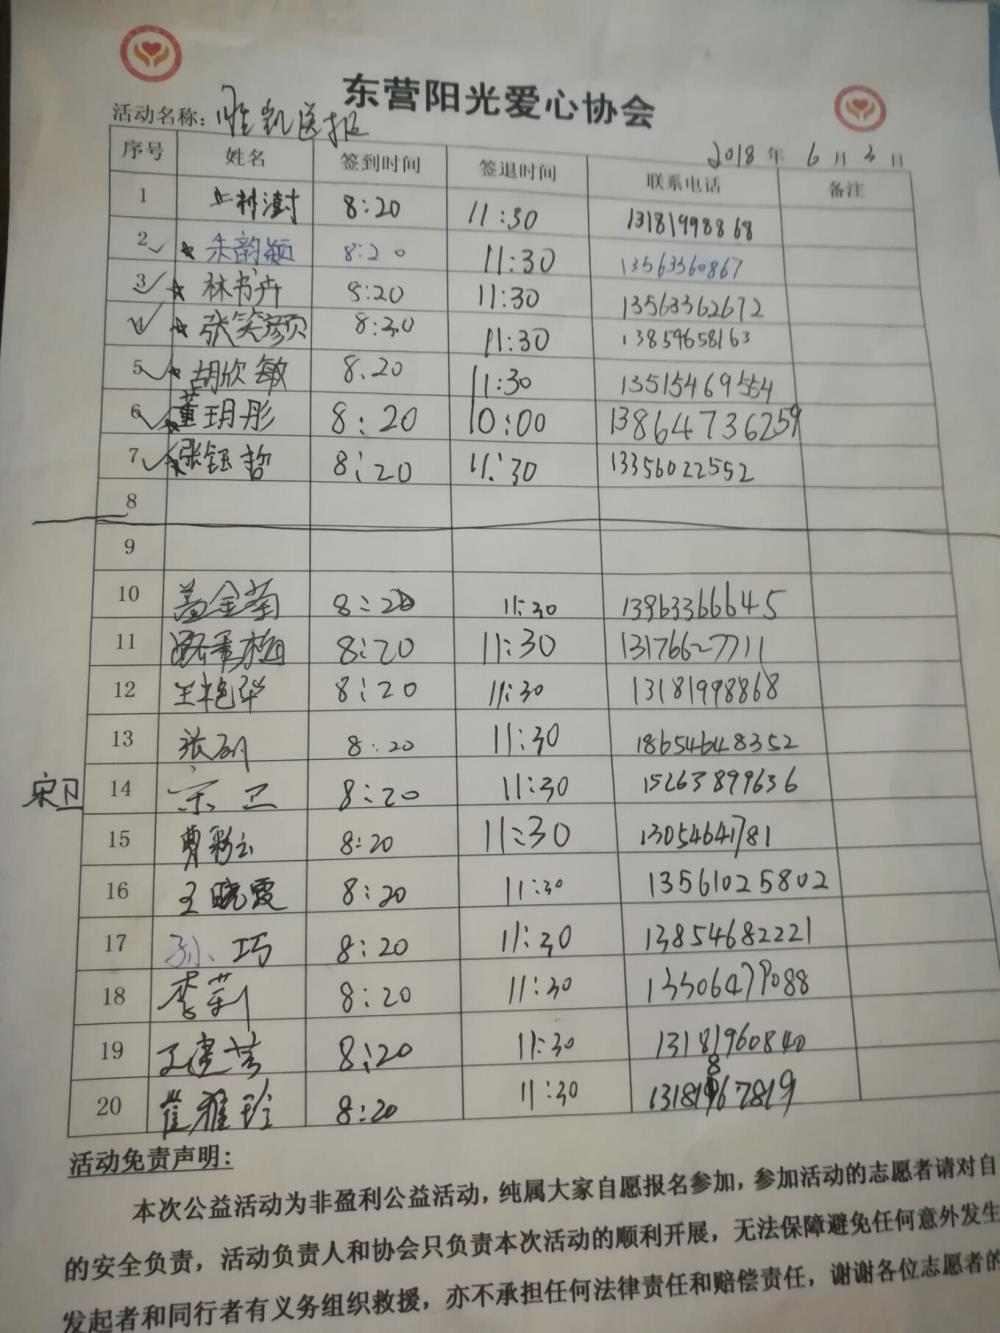 东营阳光爱心协会
活动名称：
2018 年 6 月 3 日
序号 姓名 签到时间 签退时间 联系电话 备注
1 8:20 11:30 13181998868
2 朱韵颖 8:20 11:30 13563360867
3 林书卉 8:20 11:30 13563362672
4 张笑颜 8:20 11:30 13859658163
5 胡欣敏 8.20 11:30 13515469554
6 董玥彤 8:20 10:00 13864736259
7 张钰哲 8:20 11:30 13356022552
8
9
10 盖金菊 8:20 11:30 13963366645
11 8:20 11:30 13176627711
12 王艳华 8:20 11:30 13181998868
13 张 8:20 11:30 18654648352
宋卫 14 宋卫 8:20 11:30 15263899636
15 曹彩云 8:20 11:30 13054641781
16 王晓霞 8:20 11:30 13561025802
17 孙巧 8:20 11:30 13854682221
18 李莉 8:20 11:30 13306479088
19 王建芳 8:20 11:30 13181960840
20 崔雅玲 8:20 11:30
活动免责声明：
本次公益活动为非盈利公益活动，纯属大家自愿报名参加，参加活动的志愿者请对自
的安全负责，活动负责人和协会只负责本次活动的顺利开展，无法保障避免任何意外发生
发起者和同行者有义务组织救援，亦不承担任何法律责任和赔偿责任，谢谢各位志愿者的